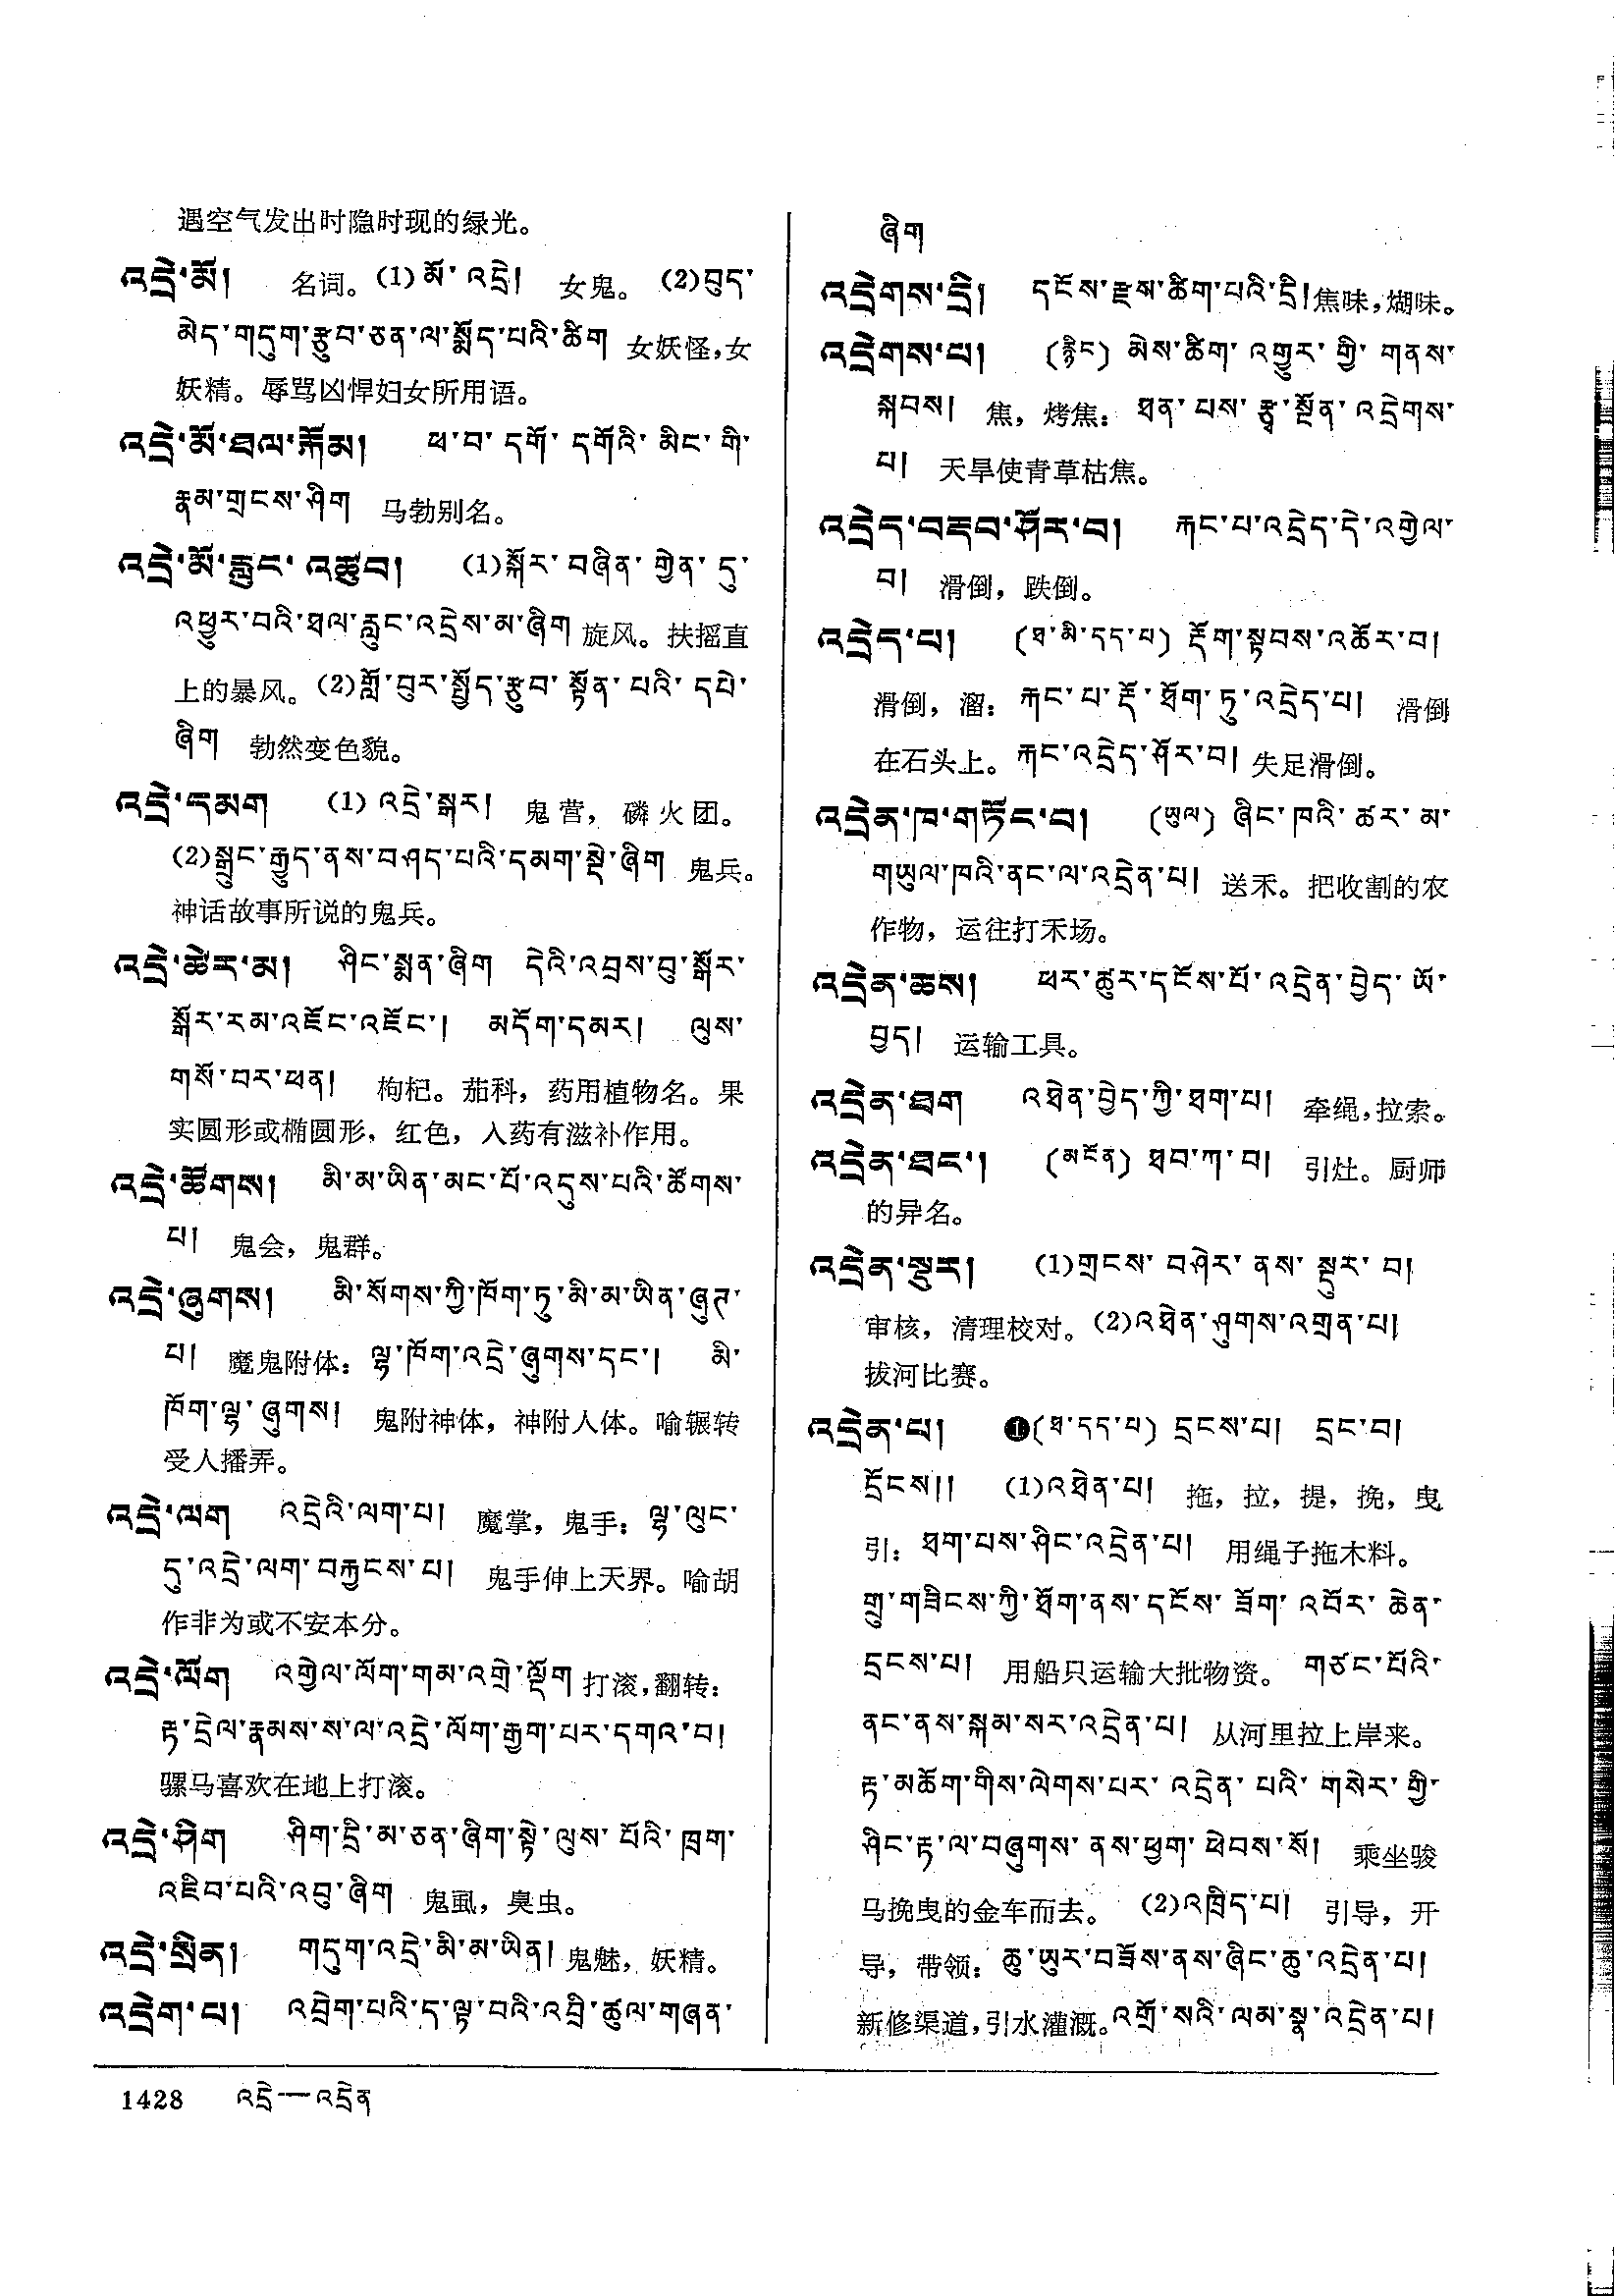 遇空气发出时隐时现的绿光。
འདྲེ་མོ། 名词。(1)མོ་འདྲེ། 女鬼。(2)བུད་
མེད་གདུག་རྩུབ་ཅན་ལ་སྨོད་པའི་ཚིག 女妖怪,女
妖精。辱骂凶悍妇女所用语。
འདྲེ་མོ་ཐལ་རྐོམ། ཕ་བ་དགོ་དགོའི་མིང་གི་
རྣམ་གྲངས་ཤིག 马勃别名。
འདྲེ་མོ་རླུང་འཚུབ། (1)སྐོར་བཞིན་གྱེན་དུ་
འཕྱུར་བའི་ཐལ་རླུང་འདྲེས་མ་ཞིག 旋风。扶摇直
上的暴风。(2)གློ་བུར་སྤྱོད་རྩུབ་སྟོན་པའི་དཔེ་
ཞིག 勃然变色貌。
འདྲེ་དམག (1)འདྲེ་སྒར། 鬼营，磷火团。
(2)སྒྲུང་རྒྱུད་ནས་བཤད་པའི་དམག་སྡེ་ཞིག 鬼兵。
神话故事所说的鬼兵。
འདྲེ་ཚེར་མ། ཤིང་སྨན་ཞིག དེའི་འབྲས་བུ་སྒོར་
སྒོར་རམ་འཇོང་འཇོང་། མདོག་དམར། ལུས་
གསོ་བར་ཕན། 枸杞。茄科，药用植物名。果
实圆形或椭圆形，红色，入药有滋补作用。
འདྲེ་ཚོགས། མི་མ་ཡིན་མང་པོ་འདུས་པའི་ཚོགས་
པ། 鬼会，鬼群。
འདྲེ་ཞུགས། མི་སོགས་ཀྱི་ཁོག་ཏུ་མི་མ་ཡིན་ཞུཊ་
པ། 魔鬼附体：ལྷ་ཁོག་འདྲེ་ཞུགས་དང་། མི་
ཁོག་ལྷ་ཞུགས། 鬼附神体，神附人体。喻辗转
受人播弄。
འདྲེ་ལག འདྲེའི་ལག་པ། 魔掌，鬼手：ལྷ་ལུང་
དུ་འདྲེ་ལག་བརྐྱངས་པ། 鬼手伸上天界。喻胡
作非为或不安本分。
འདྲེ་ལོག འགྱེལ་ལོག་གམ་འགྲེ་ལྡོག 打滚,翻转：
རྟ་དྲེལ་རྣམས་ས་ལ་འདྲེ་ལོག་རྒྱག་པར་དགའ་བ།
骡马喜欢在地上打滚。
འདྲེ་ཤིག ཤིག་དྲི་མ་ཅན་ཞིག་སྟེ་ལུས་པོའི་ཁྲག་
འཇིབ་པའི་འབུ་ཞིག 鬼虱，臭虫。
འདྲེ་སྲིན། གདུག་འདྲེ་མི་མ་ཡིན། 鬼魅，妖精。
འདྲེག་པ། འབྲེག་པའི་ད་ལྟ་བའི་འབྲི་ཚུལ་གཞན་
ཞིག
འདྲེགས་དྲི། དངོས་རྫས་ཚིག་པའི་དྲི། 焦味,煳味。
འདྲེགས་པ། (རྙིང) མེས་ཚིག་འགྱུར་གྱི་གནས་
སྐབས། 焦，烤焦：ཐན་པས་རྩྭ་སྔོན་འདྲེགས་
པ། 天旱使青草枯焦。
འདྲེད་བརྡབ་ཤོར་བ། རྐང་པ་འདྲེད་དེ་འགྱེལ་
བ། 滑倒，跌倒。
འདྲེད་པ། (ཐ་མི་དད་པ) རྡོག་སྟབས་འཚོར་བ།
滑倒，溜：རྐང་པ་རྡོ་ཐོག་ཏུ་འདྲེད་པ། 滑倒
在石头上。རྐང་འདྲེད་ཤོར་བ། 失足滑倒。
འདྲེན་ཁ་གཏོང་བ། (ཡུལ) ཞིང་ཁའི་ཚར་མ་
གཡུལ་ཁའི་ནང་ལ་འདྲེན་པ། 送禾。把收割的农
作物，运往打禾场。
འདྲེན་ཆས། ཕར་ཚུར་དངོས་པོ་འདྲེན་བྱེད་ཡོ་
བྱད། 运输工具。
འདྲེན་ཐག འཐེན་བྱེད་ཀྱི་ཐག་པ། 牵绳,拉索。
འདྲེན་ཐང་། (མངོན) ཐབ་ཀ་བ། 引灶。厨师
的异名。
འདྲེན་སྡུར། (1)གྲངས་བཤེར་ནས་སྡུར་བ།
审核，清理校对。(2)འཐེན་ཤུགས་འགྲན་པ།
拔河比赛。
འདྲེན་པ། ❶(ཐ་དད་པ) དྲངས་པ། དྲང་བ།
དྲོངས།། (1)འཐེན་པ། 拖，拉，提，挽，曳
引：ཐག་པས་ཤིང་འདྲེན་པ། 用绳子拖木料。
གྲུ་གཟིངས་ཀྱི་ཐོག་ནས་དངོས་ཟོག་འབོར་ཆེན་
དྲངས་པ། 用船只运输大批物资。གཙང་པོའི་
ནང་ནས་སྐམ་སར་འདྲེན་པ། 从河里拉上岸来。
རྟ་མཆོག་གིས་ལེགས་པར་འདྲེན་པའི་གསེར་གྱི་
ཤིང་རྟ་ལ་བཞུགས་ནས་ཕྱག་ཕེབས་སོ། 乘坐骏
马挽曳的金车而去。(2)འཁྲིད་པ། 引导，开
导，带领：ཆུ་ཡུར་བཟོས་ནས་ཞིང་ཆུ་འདྲེན་པ།
新修渠道,引水灌溉。འགྲོ་སའི་ལམ་སྣ་འདྲེན་པ།
1428 འདྲེ—འདྲེན